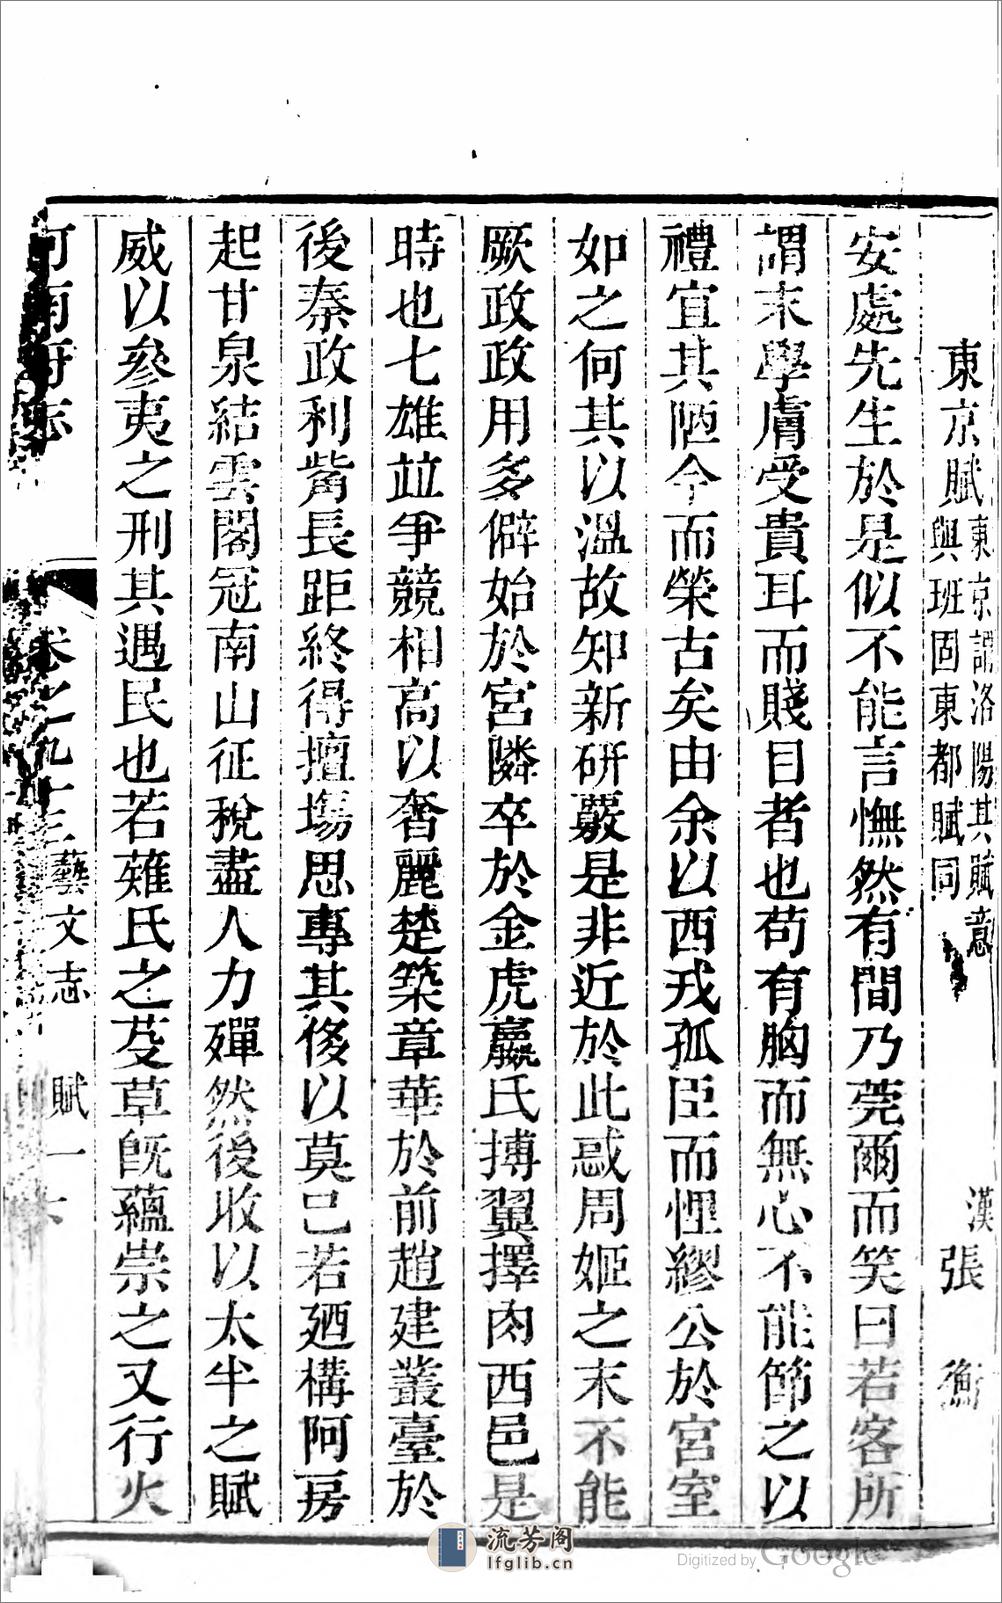 東京賦東京謂洛陽其賦意與班固東都賦同 漢張衡
安處先生於是似不能言憮然有間乃莞爾而笑曰若客所
謂末學膚受貴耳而賤目者也苟有胸而無心不能節之以
禮宜其陋今而榮古矣由余以西戎孤臣而悝繆公於宮室
如之何其以溫故知新研覈是非近於此惑周姬之末不能
厥政政用多僻始於宮隣卒於金虎嬴氏搏翼擇肉西邑是
時也七雄並爭競相高以奢麗楚築章華於前趙建叢臺於
後秦政利觜長距終得擅場思專其侈以莫己若廼構阿房
起甘泉結雲閣冠南山征稅盡人力殫然後收以太半之賦
威以參夷之刑其遇民也若薙氏之芟草旣蘊崇之又行火
河南府志 卷之九十三 藝文志 賦一
流芳阁
lfglib.cn
Digitized by Google